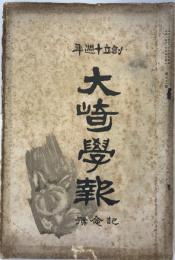 創立十週年
大崎學報
記念號